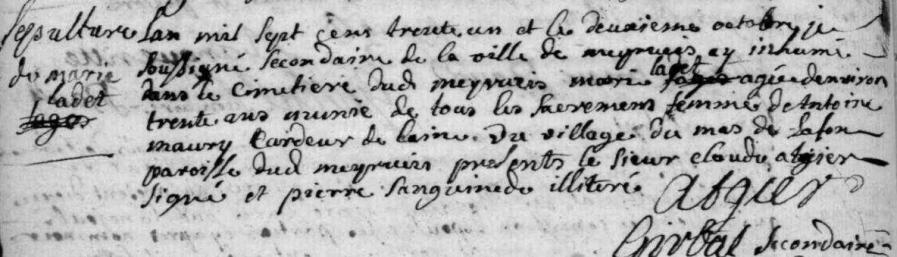 Sepulture
de marie
ladet
fages
Lan mil sept cens trente un et le deuxieme octobre je
soussigné secondaire de la ville de meyrueis ay inhumé
dans le cimetiere dud meyrueis marie ladet fages agée denviron
trente ans munie de tous les sacremens femme de Antoine
maury Cardeur de laine du village du mas de lafon
paroisse dud meyrueis presents le sieur claude atgier
signé et pierre sanguinede illiteré
Atgier
Girbal secondaire